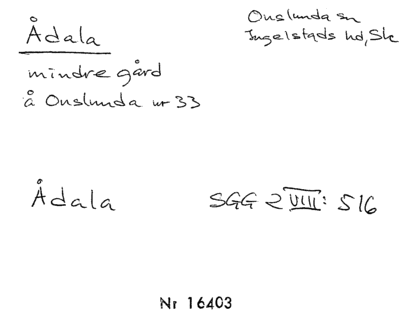 Ådala
Onslunda sn
Ingelstads hd, Sk
mindre gård
å Onslunda nr 33
Ådala
SGG 2 VIII: 516
Nr 16403